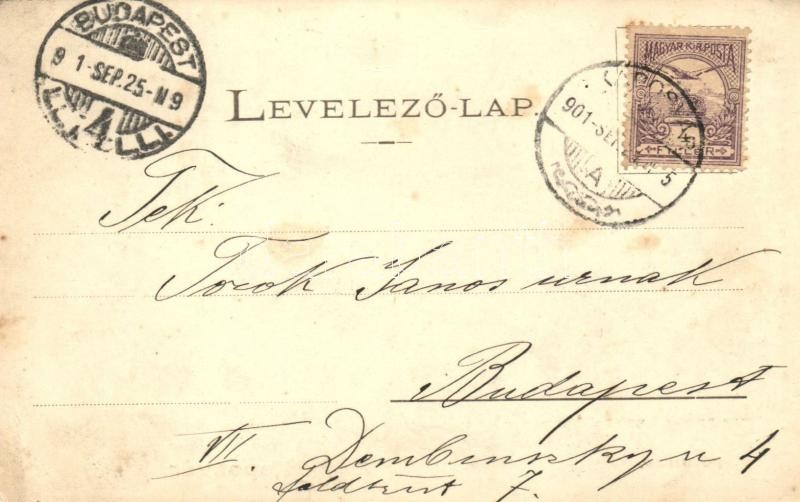 BUDAPEST
901-SEP.25-M9
4
LEVELEZŐ-LAP
MAGYAR KIR. POSTA
FILLÉR
901-SEP.
A
Tek.
Török Janos urnak
Budapest
VII. Dembinszky u 4
földszint 7.